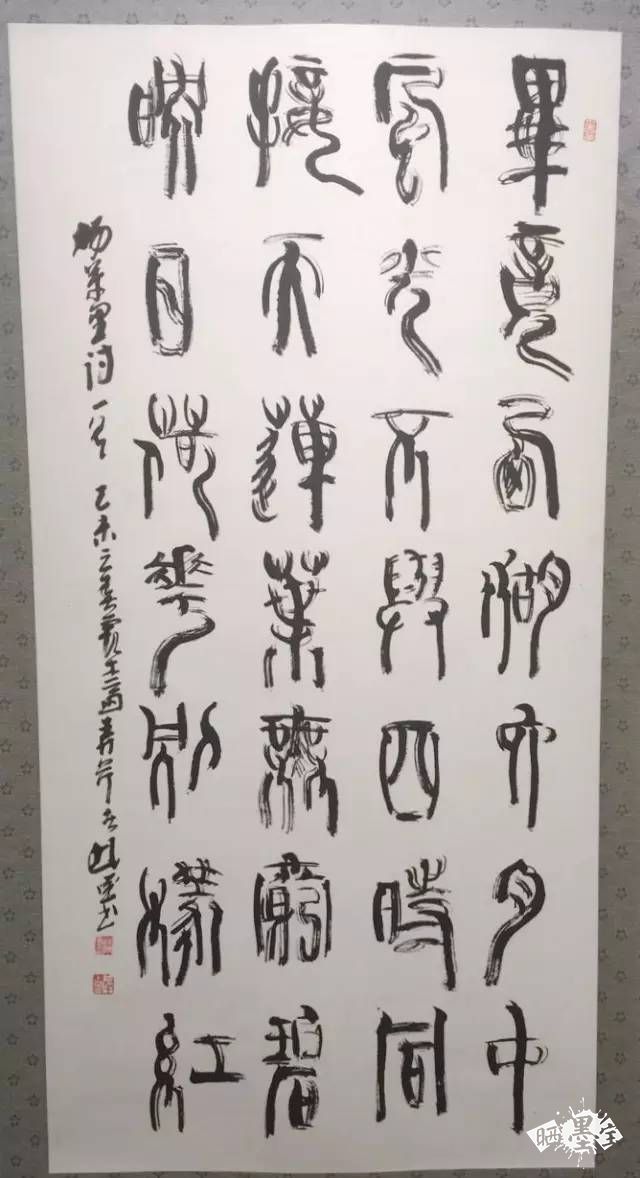 畢竟西湖六月中
風光不與四時同
接天蓮葉無窮碧
映日荷華別樣紅
楊萬里詩一首 乙未之春
晒墨宝